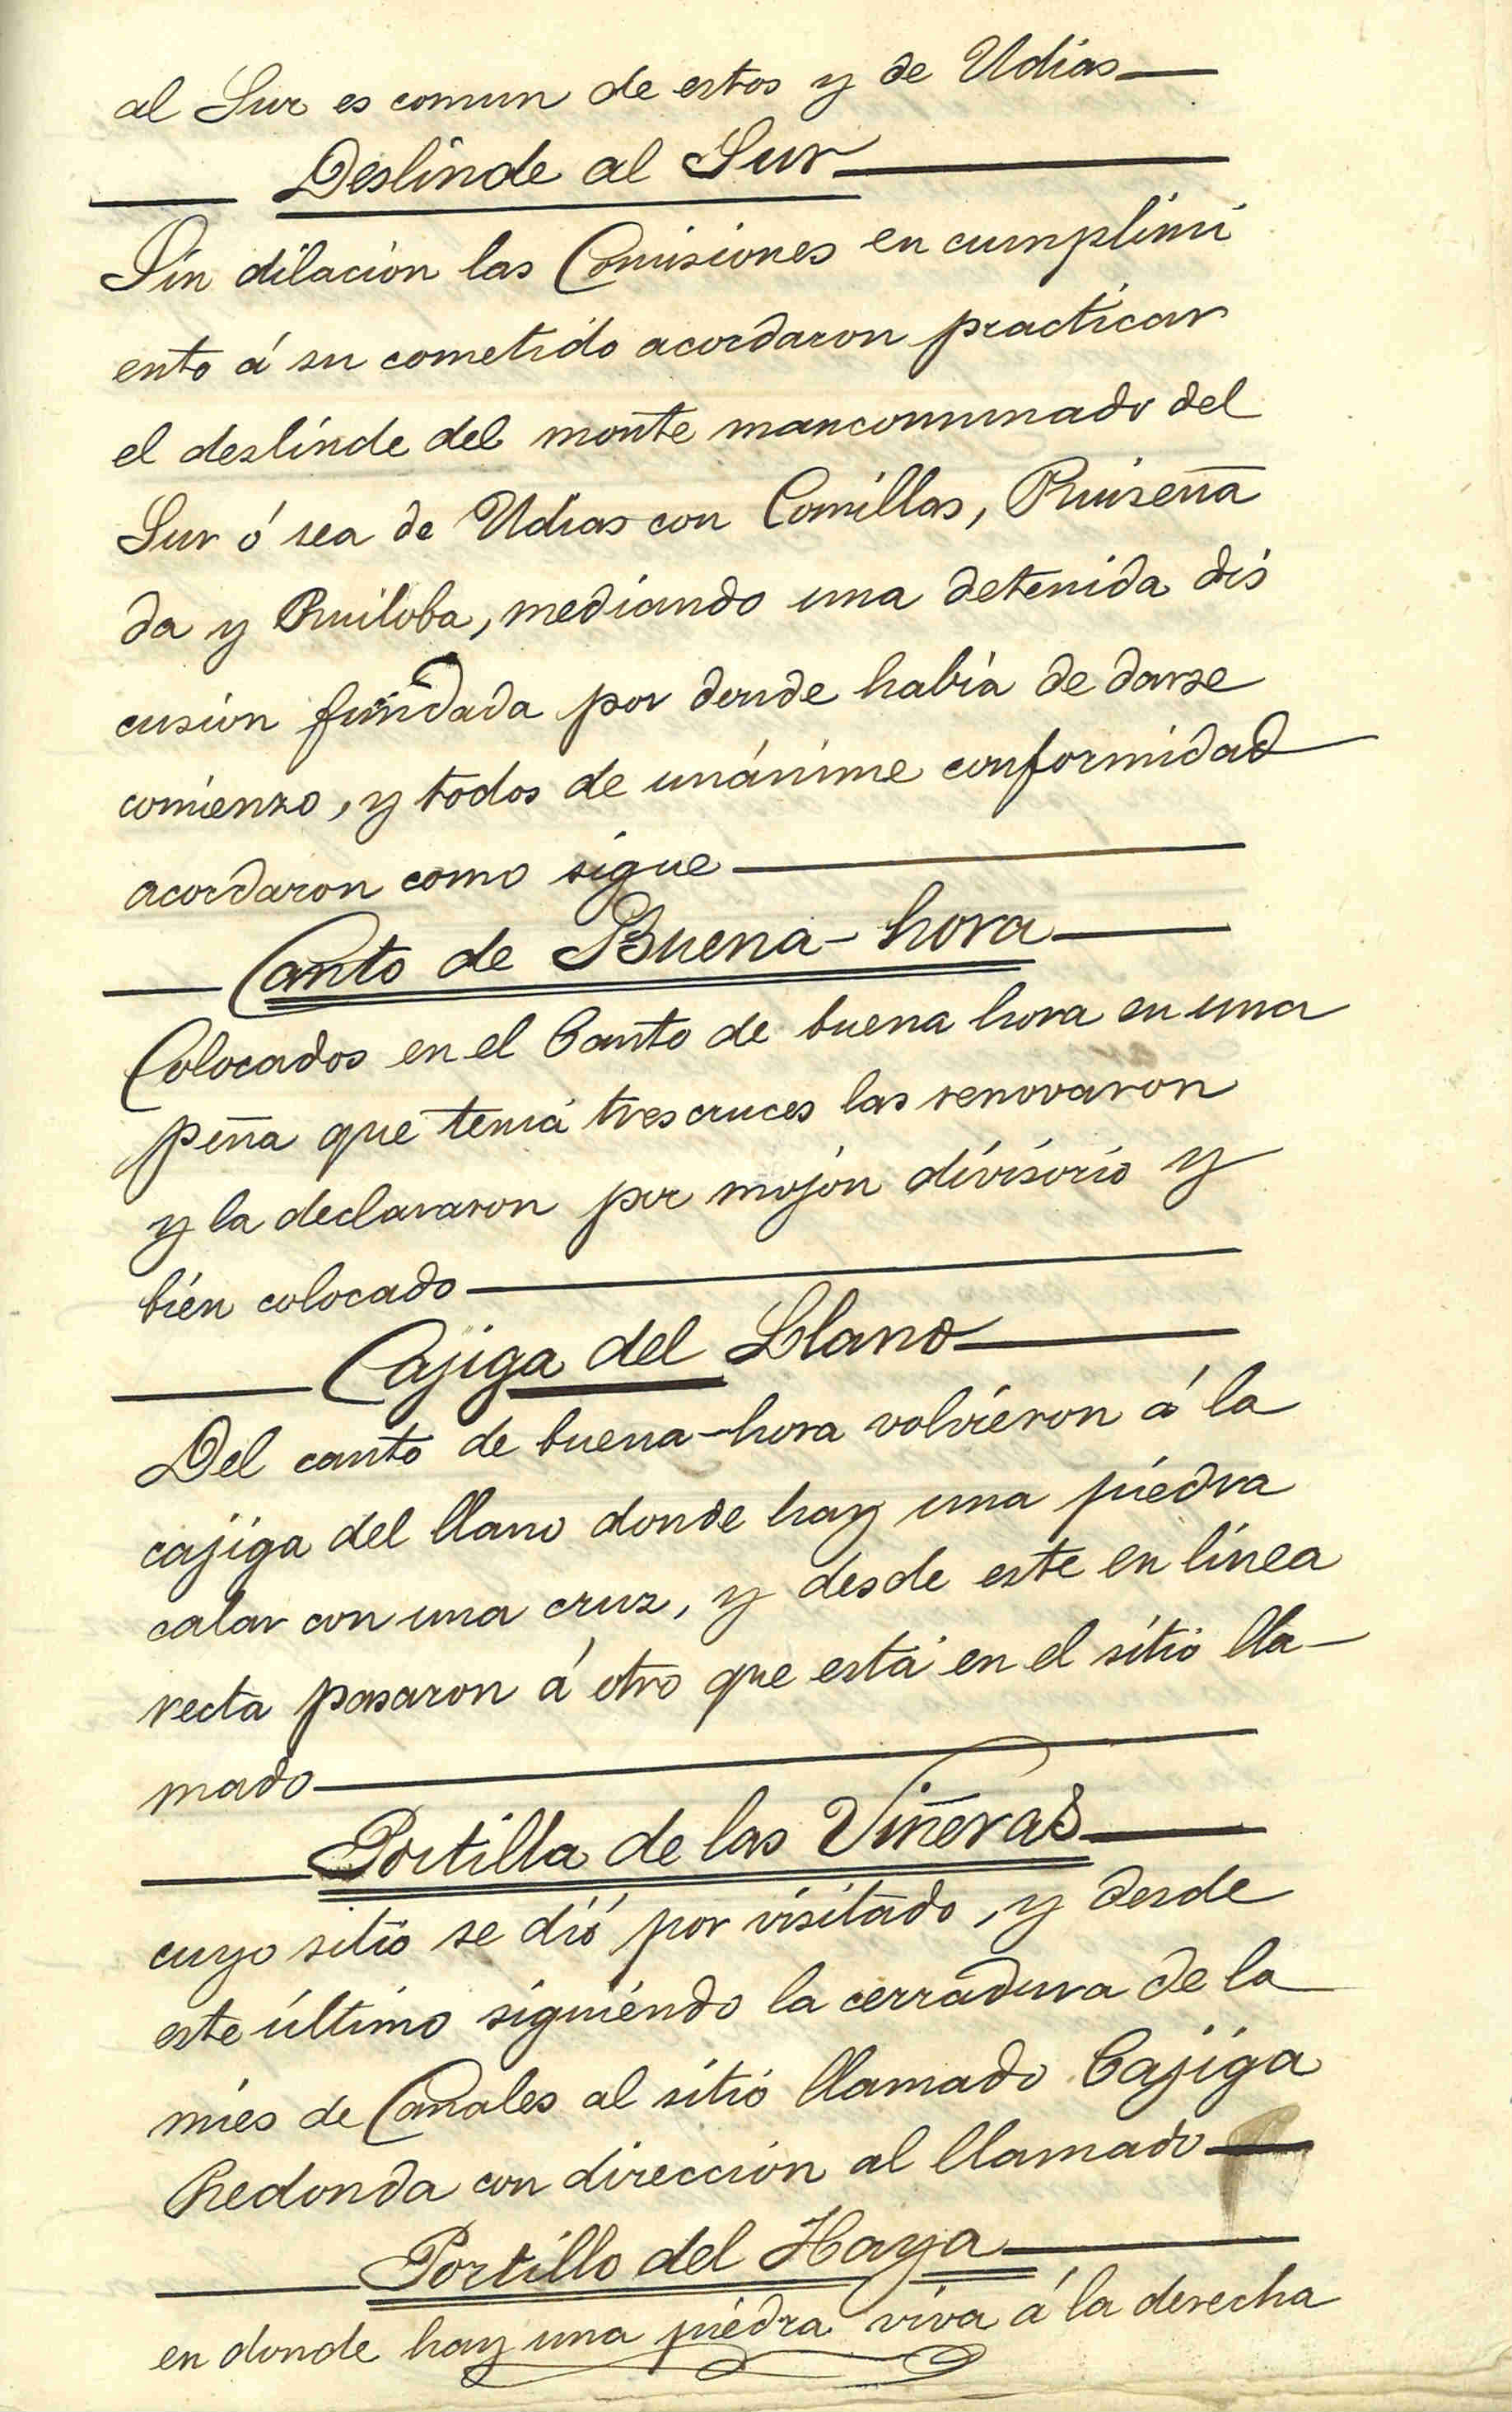 al Sur es comun de estos y de Udias—
— Deslinde al Sur —
Sin dilación las Comisiones en cumplimi
ento á su cometido acordaron practicar
el deslinde del monte mancomunado del
Sur ó sea de Udias con Comillas, Ruiseña
da y Ruiloba, mediando una detenida dis
cusion fundada por donde habia de darse
comienzo, y todos de unánime conformidad
acordaron como sigue —
— Canto de Buena-hora —
Colocados en el Canto de buena hora en una
peña que tenia tres cruces las renovaron
y la declararon por mojón divisorio y
bien colocado —
— Cajiga del Llano —
Del canto de buena-hora volvieron á la
cajiga del llano donde hay una piedra
calar con una cruz, y desde este en línea
recta pasaron á otro que está en el sitio lla-
mado —
— Portilla de las Viñeras —
cuyo sitio se dió por visitado, y desde
este último siguiendo la cerradura de la
mies de Canales al sitio llamado Cajiga
Redonda con dirección al llamado —
— Portillo del Haya —
en donde hay una piedra viva á la derecha